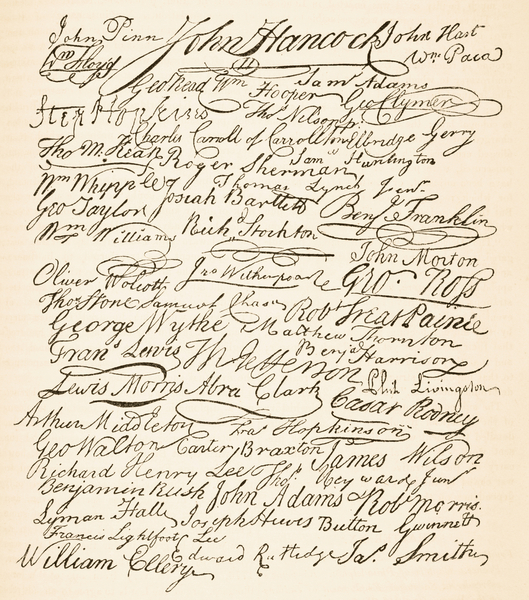 John Penn John Hancock John Hart
Wm Floyd Wm Paca
Geo Read Wm Hooper Saml Adams
Step Hopkins Thos Nelson jr. Geo Clymer
Charles Carroll of Carrollton Elbridge Gerry
Tho M. Kean Roger Sherman Saml Huntington
Wm Whipple Thomas Lynch Junr.
Geo Taylor Josiah Bartlett Benj Franklin
Wm Williams Richd Stockton John Morton
Oliver Wolcott Jno Witherspoon Geo. Ross
Thos Stone Samuel Chase Robt Treat Paine
George Wythe Matthew Thornton
Frans Lewis Th Jefferson Benj Harrison
Lewis Morris Abra Clark Phil. Livingston
Cæsar Rodney
Arthur Middleton Fras Hopkinson
Geo Walton Carter Braxton James Wilson
Richard Henry Lee Thos. Heyward Junr
Benjamin Rush John Adams Robt Morris.
Lyman Hall Joseph Hewes Button Gwinnett
Francis Lightfoot Lee
William Ellery Edward Rutledge Jas. Smith